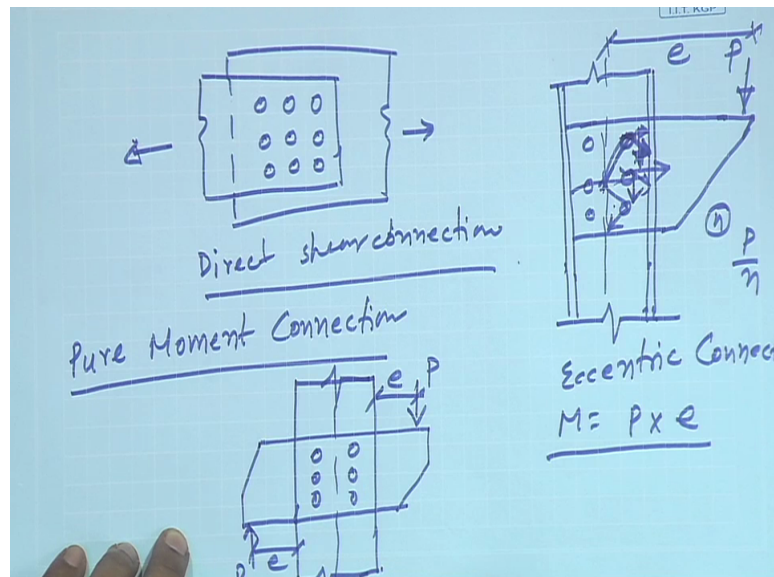 I.I.T. KGP
e P
Direct shear connection
n
P
n
Pure Moment Connection
e P
Eccentric Connec
M = P x e
P e